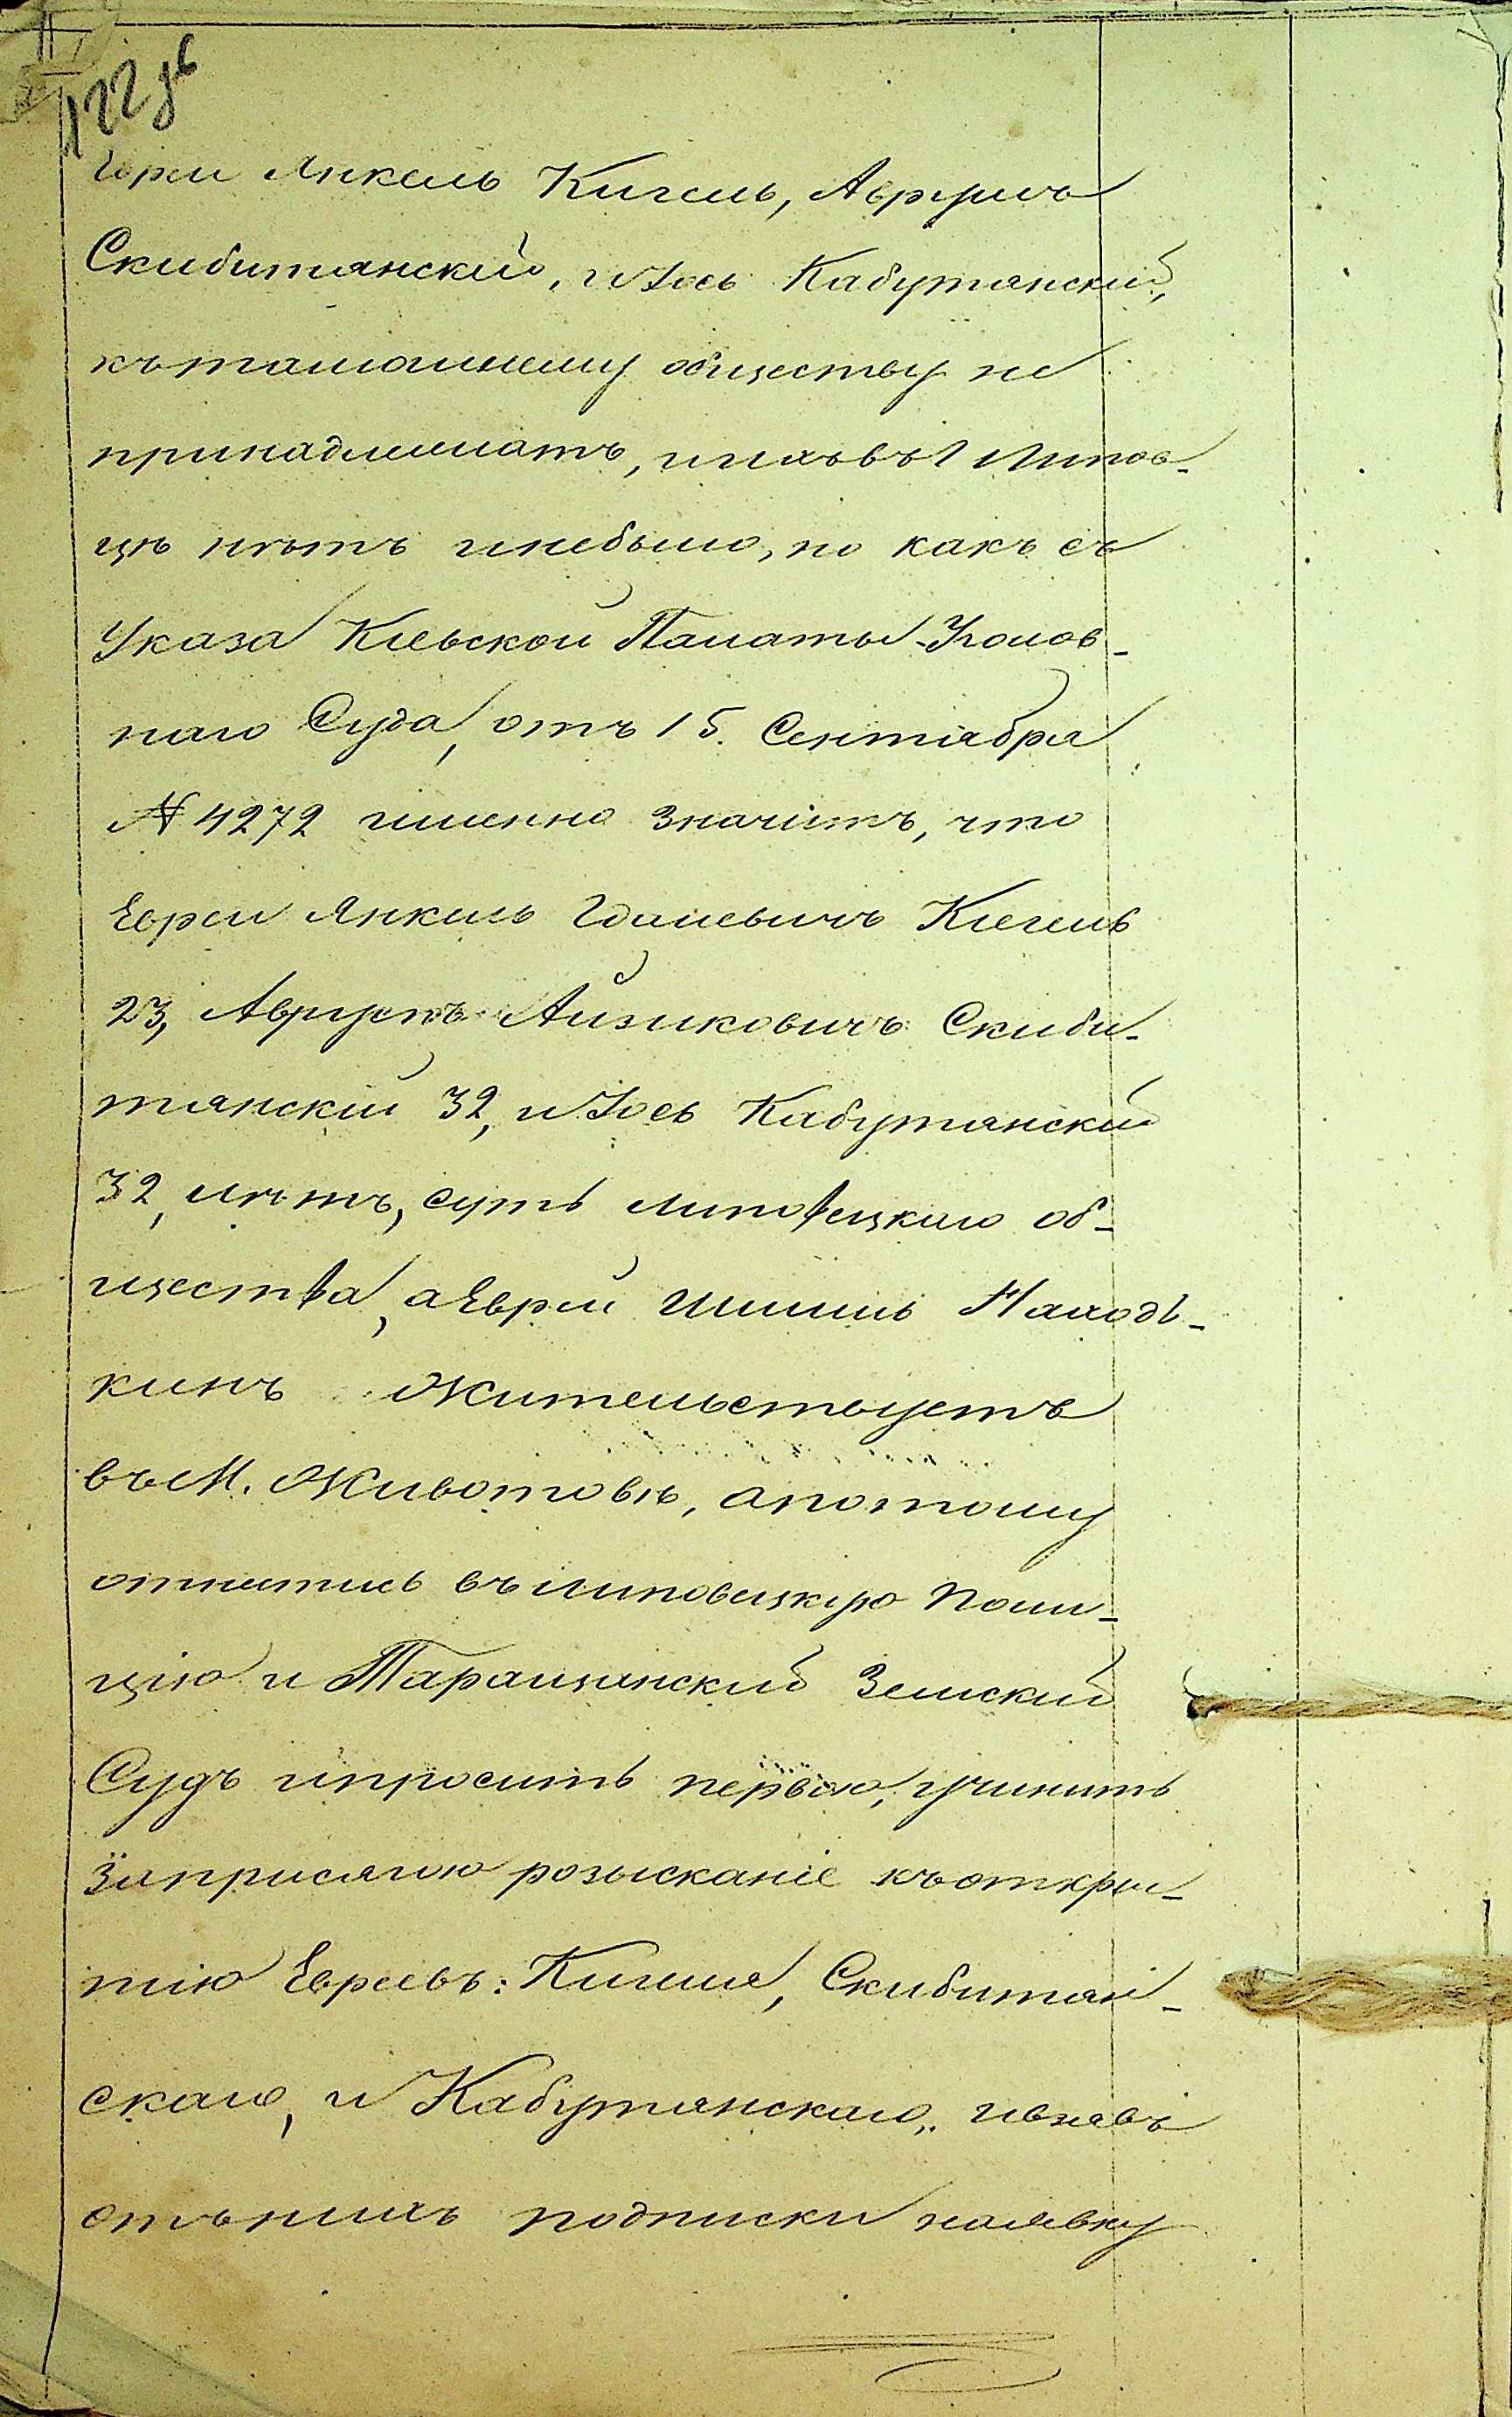 122 об
Евреи Янкель Кигель, Аврумъ
Скибитянскій, и Іось Кабутянскій,
къ тамошнему обществу не
принадлежатъ, и ихъ въ Липов-
цѣ нѣтъ и небыло, но какъ съ
Указа Кіевской Палаты Уголов-
наго Суда, отъ 15. Сентября
№ 4272 именно значитъ, что
Евреи Янкель Гдалевичъ Кигель
23, Аврумъ Айзиковичъ Скиби-
тянскій 32, и Іось Кабутянскій
32, лѣтъ, суть Липовецкаго об-
щества, а Еврей Шмиль Находь-
кинъ Жительствуетъ
въ М. Животовкѣ, а потому
отнестись въ Липовецкую Поли-
цію и Таращанскій Земскій
Судъ и просить первую, учинить
за присягою розысканіе къ откры-
тію Евреевъ: Кигеля, Скибитян-
скаго, и Кабутянскаго, и взявъ
отъ нихъ подписки на явку